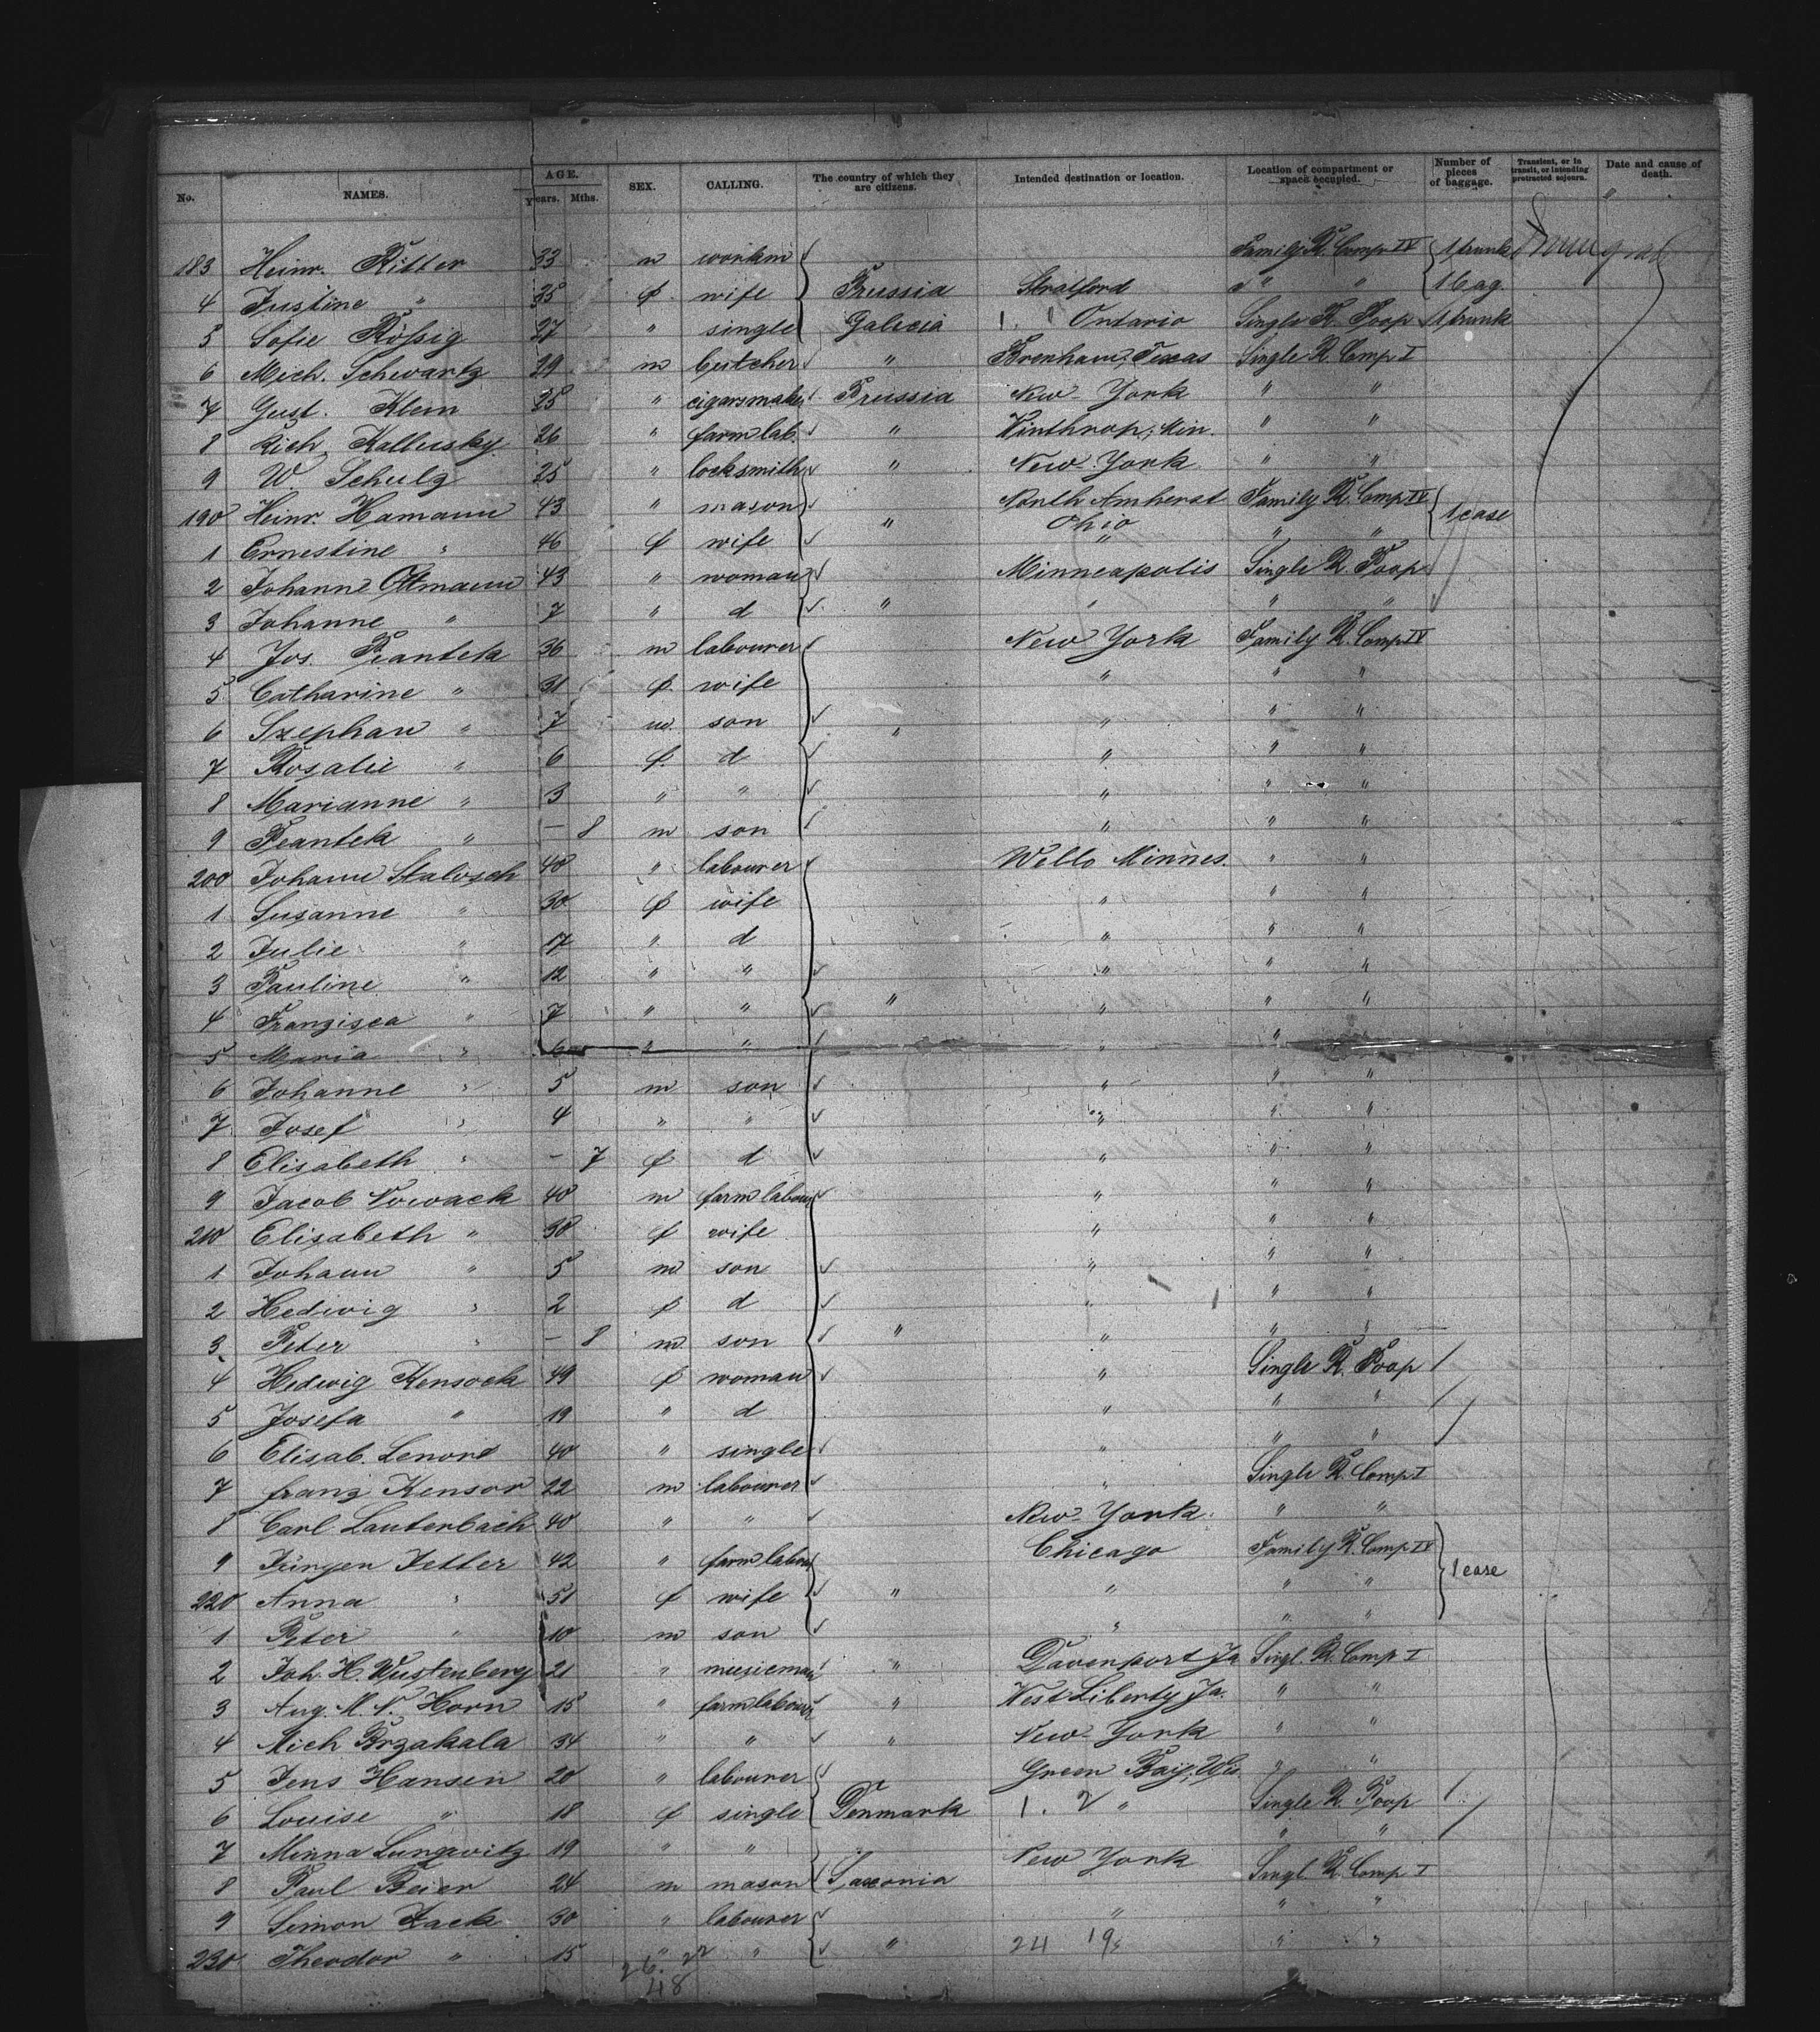 No. NAMES. AGE. Years. Mths. SEX. CALLING. The country of which they are citizens. Intended destination or location. Location of compartment or space occupied. Number of pieces of baggage. Transient, or in transit, or intending protracted sojourn. Date and cause of death.
183 Heinr. Ritter 33 m workm Family R. Comp IV 1 trunk
4 Justine " 35 f wife Prussia Stratford " " 1 bag.
5 Sofie Rößig 27 " single Galicia 1. 1 Ontario Single R. Poop 1 trunk
6 Mich. Schwartz 29 m butcher " Brenham, Texas Single R. Comp I
7 Gust. Klem 25 " cigarsmaker Prussia New York " "
8 Rich. Kallusky 26 " farm lab. " Winthrop, Min. " "
9 W. Schulz 25 " locksmith " New York " "
190 Heinr. Hamann 43 " mason " North Amherst Ohio Family R. Comp IV 1 case
1 Ernestine " 46 f wife " " "
2 Johanne Ottmann 43 " woman Minneapolis Single R. Poop
3 Johanne " 7 " d " " " "
4 Jos. Piantek 36 m labourer New York Family R. Comp IV
5 Catharine " 31 f wife " " "
6 Szephan " 7 m son " " " "
7 Rosalie " 6 f d " " "
8 Marianne " 3 " " " " "
9 Piantek " – 8 m son " " "
200 Johann Stalosch 40 " labourer Wells Minnes. " "
1 Susanne " 30 f wife " " "
2 Julie " 17 " d " " "
3 Pauline " 12 " " " " "
4 Franzisca " 7 " " " " " "
5 Maria " 6 " " " "
6 Johanne " 5 m son " " "
7 Josef " 4 " " " " "
8 Elisabeth " – 7 f d " " "
9 Jacob Nowack 40 m farm labour " " "
210 Elisabeth " 38 f wife " " "
1 Johann " 5 m son " " "
2 Hedwig " 2 f d " " "
3 Peter " – 8 m son " " " "
4 Hedwig Kensock 49 f woman " Single R. Poop
5 Josefa " 19 " d " " "
6 Elisab. Lenord 40 " single " " "
7 franz Kensor 22 m labourer " Single R. Comp I
8 Carl Lauterbach 40 " " New York " "
9 Jürgen Jetter 42 " farm labour Chicago Family R. Comp IV 1 case
220 Anna " 51 f wife " " " "
1 Peter " 10 m son " " "
2 Joh. H. Wustenberg 21 " musicman " Davenport Ja Singl. R. Comp I
3 Aug. M. N. Horn 15 " farm labour " West Liberty Ja. " "
4 Mich Brzakala 34 " " " New York " "
5 Jens Hansen 20 " labourer Green Bay, Wis. " "
6 Louise " 18 f single Denmark 1. 2 " Single R. Poop
7 Minna Lungwitz 19 " " New York " "
8 Paul Beier 24 m mason Saxonia Singl. R. Comp I
9 Simon Zack 30 " labourer " " "
230 Theodor " 15 " " " 24 19 " "
26. 22
48